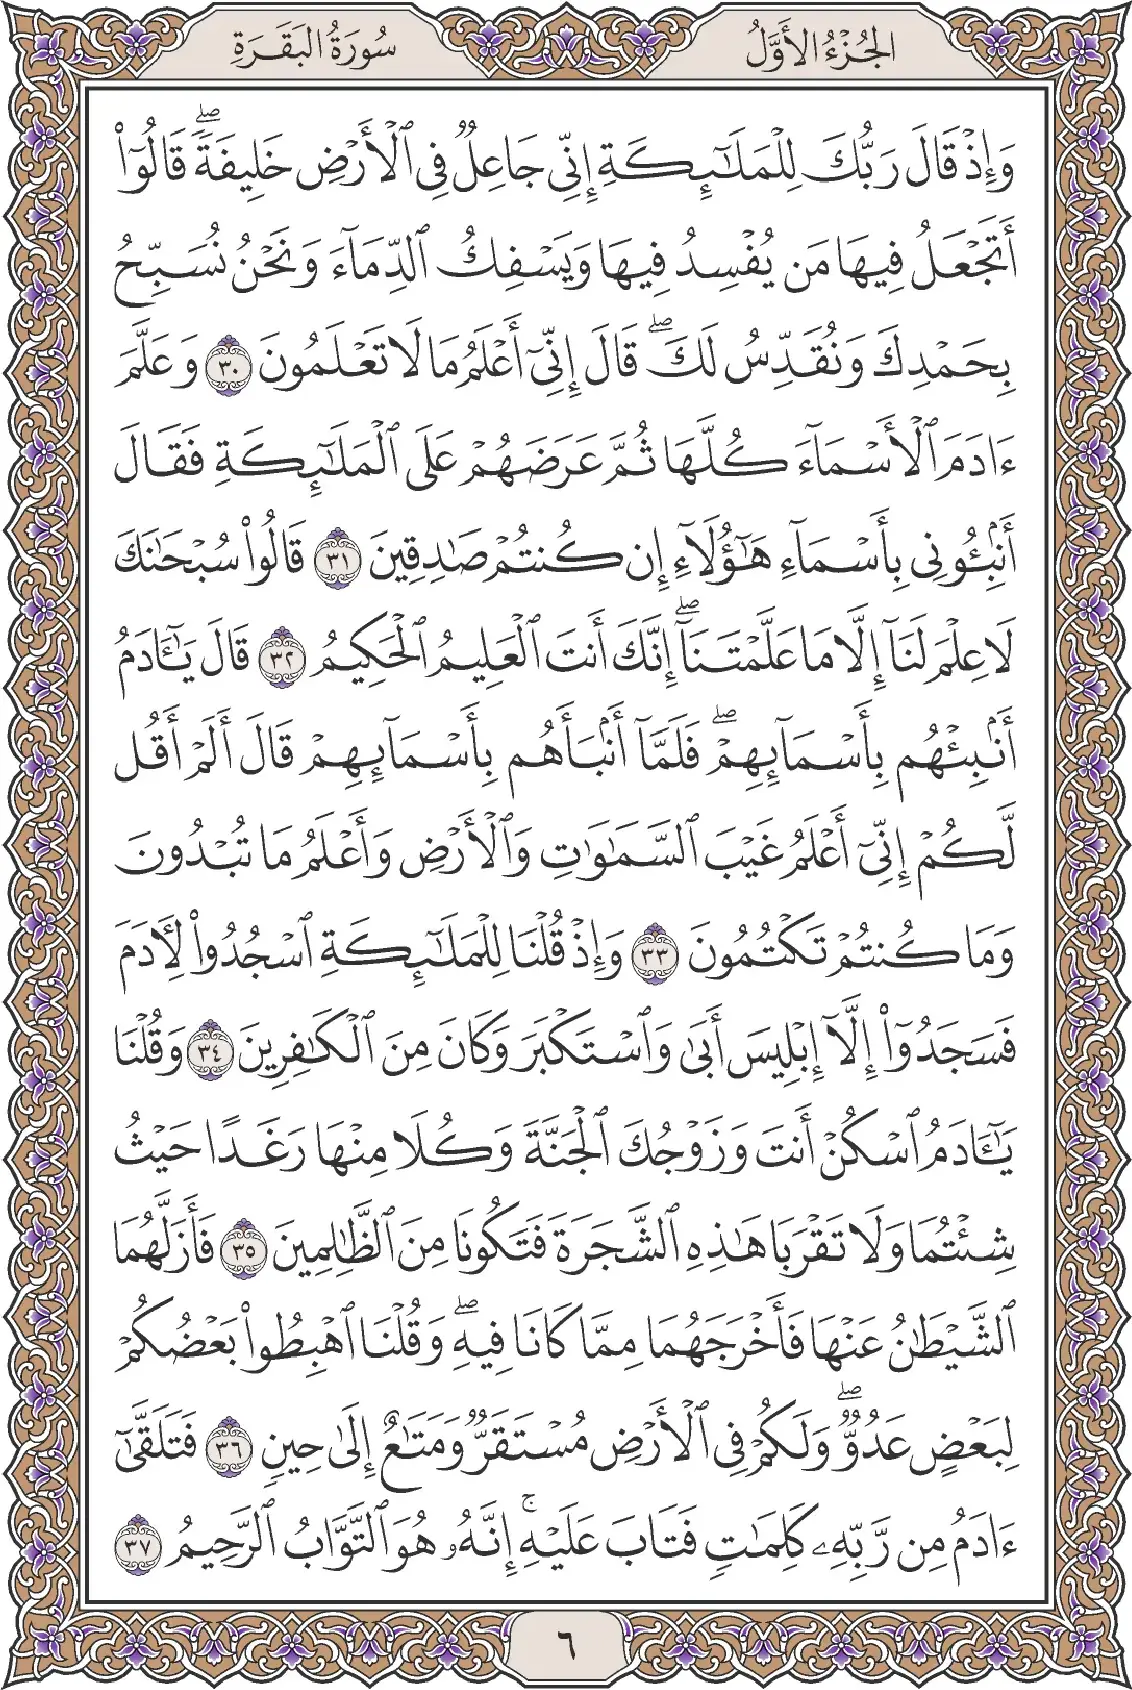 الجُزْءُ الأَوَّلُ
سُورَةُ البَقَرَةِ
وَإِذْ قَالَ رَبُّكَ لِلْمَلَـٰٓئِكَةِ إِنِّي جَاعِلٌ فِي ٱلْأَرْضِ خَلِيفَةًۖ قَالُوٓا۟
أَتَجْعَلُ فِيهَا مَن يُفْسِدُ فِيهَا وَيَسْفِكُ ٱلدِّمَآءَ وَنَحْنُ نُسَبِّحُ
بِحَمْدِكَ وَنُقَدِّسُ لَكَۖ قَالَ إِنِّيٓ أَعْلَمُ مَا لَا تَعْلَمُونَ ٣٠ وَعَلَّمَ
ءَادَمَ ٱلْأَسْمَآءَ كُلَّهَا ثُمَّ عَرَضَهُمْ عَلَى ٱلْمَلَـٰٓئِكَةِ فَقَالَ
أَنۢبِـُٔونِي بِأَسْمَآءِ هَـٰٓؤُلَآءِ إِن كُنتُمْ صَـٰدِقِينَ ٣١ قَالُوا۟ سُبْحَـٰنَكَ
لَا عِلْمَ لَنَآ إِلَّا مَا عَلَّمْتَنَآۖ إِنَّكَ أَنتَ ٱلْعَلِيمُ ٱلْحَكِيمُ ٣٢ قَالَ يَـٰٓـَٔادَمُ
أَنۢبِئْهُم بِأَسْمَآئِهِمْۖ فَلَمَّآ أَنۢبَأَهُم بِأَسْمَآئِهِمْ قَالَ أَلَمْ أَقُل
لَّكُمْ إِنِّيٓ أَعْلَمُ غَيْبَ ٱلسَّمَـٰوَٰتِ وَٱلْأَرْضِ وَأَعْلَمُ مَا تُبْدُونَ
وَمَا كُنتُمْ تَكْتُمُونَ ٣٣ وَإِذْ قُلْنَا لِلْمَلَـٰٓئِكَةِ ٱسْجُدُوا۟ لِـَٔادَمَ
فَسَجَدُوٓا۟ إِلَّآ إِبْلِيسَ أَبَىٰ وَٱسْتَكْبَرَ وَكَانَ مِنَ ٱلْكَـٰفِرِينَ ٣٤ وَقُلْنَا
يَـٰٓـَٔادَمُ ٱسْكُنْ أَنتَ وَزَوْجُكَ ٱلْجَنَّةَ وَكُلَا مِنْهَا رَغَدًا حَيْثُ
شِئْتُمَا وَلَا تَقْرَبَا هَـٰذِهِ ٱلشَّجَرَةَ فَتَكُونَا مِنَ ٱلظَّـٰلِمِينَ ٣٥ فَأَزَلَّهُمَا
ٱلشَّيْطَـٰنُ عَنْهَا فَأَخْرَجَهُمَا مِمَّا كَانَا فِيهِۖ وَقُلْنَا ٱهْبِطُوا۟ بَعْضُكُمْ
لِبَعْضٍ عَدُوٌّۖ وَلَكُمْ فِي ٱلْأَرْضِ مُسْتَقَرٌّ وَمَتَـٰعٌ إِلَىٰ حِينٍ ٣٦ فَتَلَقَّىٰٓ
ءَادَمُ مِن رَّبِّهِۦ كَلِمَـٰتٍ فَتَابَ عَلَيْهِۚ إِنَّهُۥ هُوَ ٱلتَّوَّابُ ٱلرَّحِيمُ ٣٧
٦